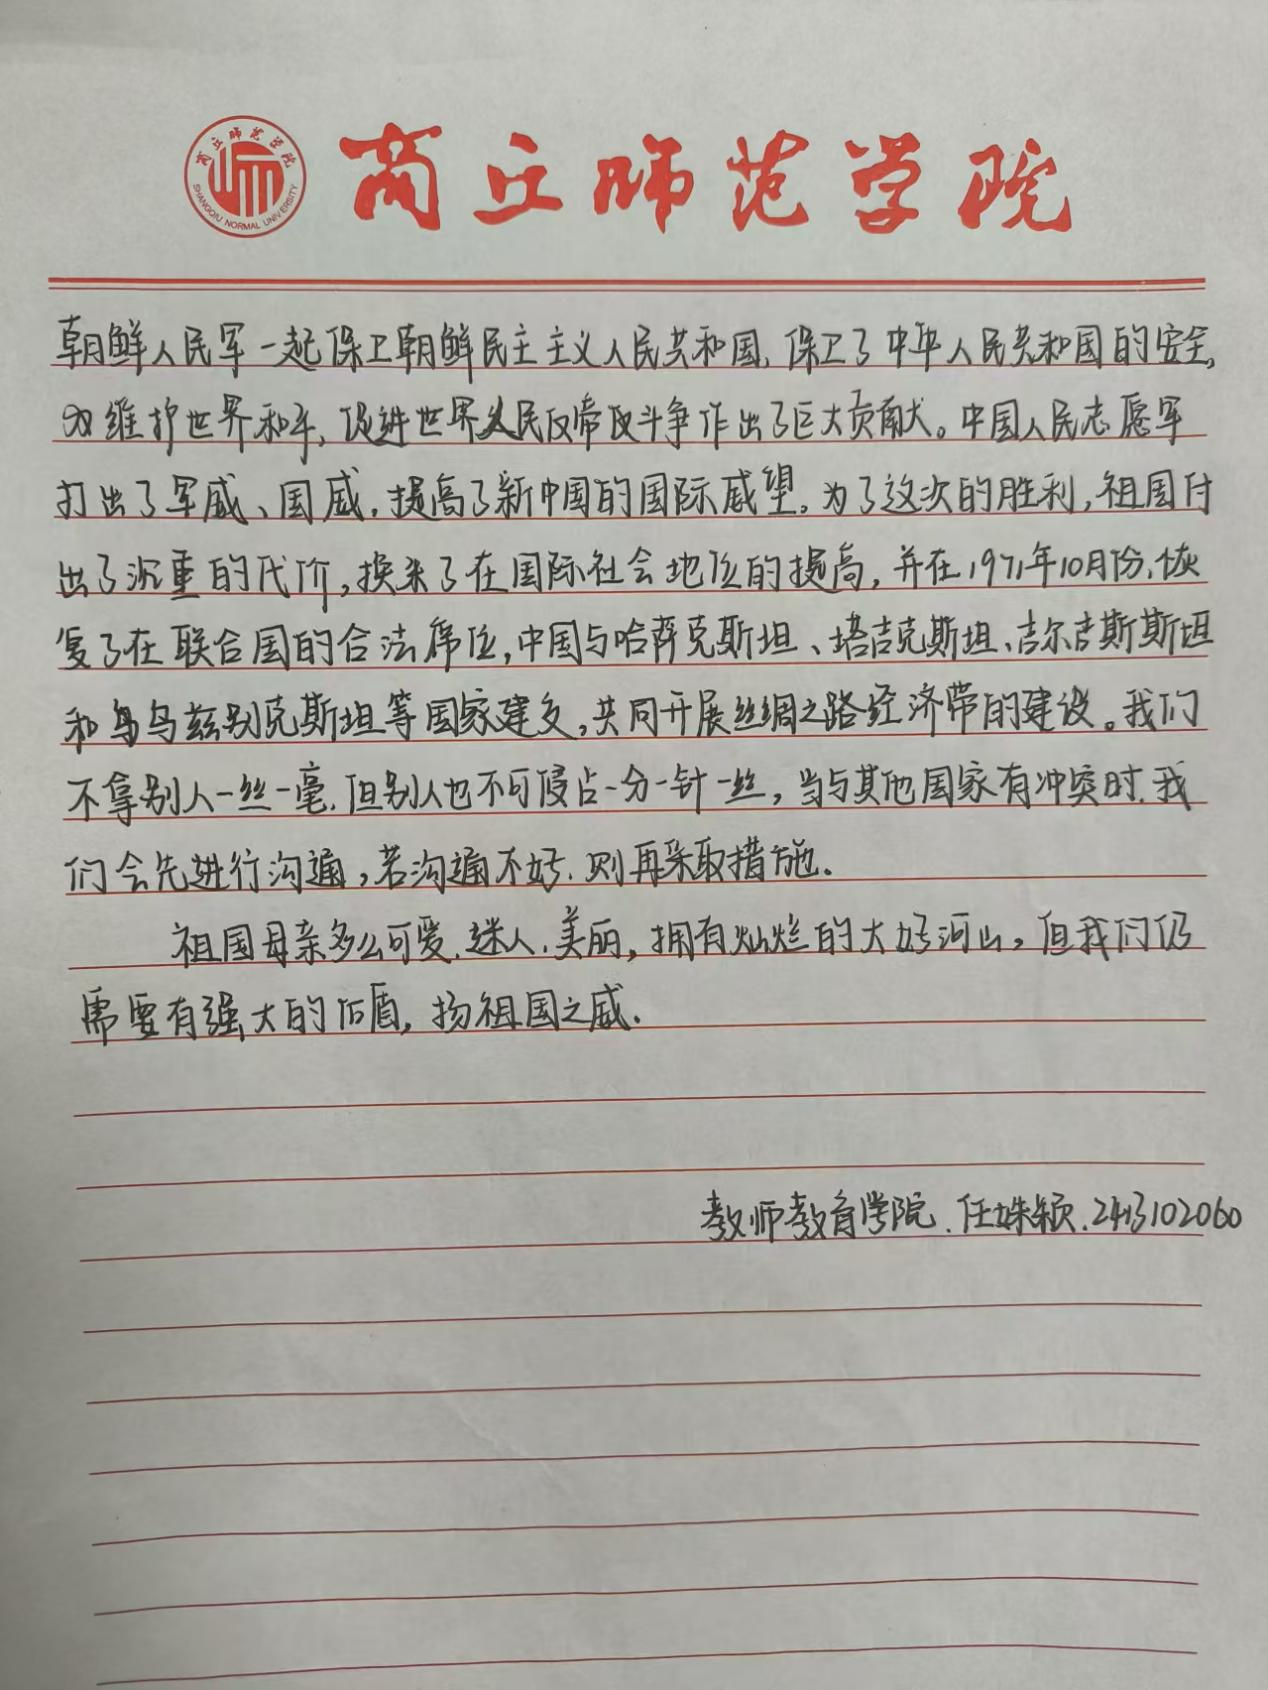 商丘师范学院
SHANGQIU NORMAL UNIVERSITY
商丘师范学院
朝鲜人民军一起保卫朝鲜民主主义人民共和国,保卫了中华人民共和国的安全,
为维护世界和平,促进世界人民反帝反斗争作出了巨大贡献。中国人民志愿军
打出了军威、国威,提高了新中国的国际威望。为了这次的胜利,祖国付
出了沉重的代价,换来了在国际社会地位的提高,并在1971年10月份,恢
复了在联合国的合法席位,中国与哈萨克斯坦、塔吉克斯坦、吉尔吉斯斯坦
和乌兹别克斯坦等国家建交,共同开展丝绸之路经济带的建设。我们
不拿别人一丝一毫,但别人也不可侵占一分一针一丝,当与其他国家有冲突时,我
们会先进行沟通,若沟通不好,则再采取措施。
祖国母亲多么可爱、迷人、美丽,拥有灿烂的大好河山,但我们仍
需要有强大的后盾,扬祖国之威.
教师教育学院.任姝颖.2413102060